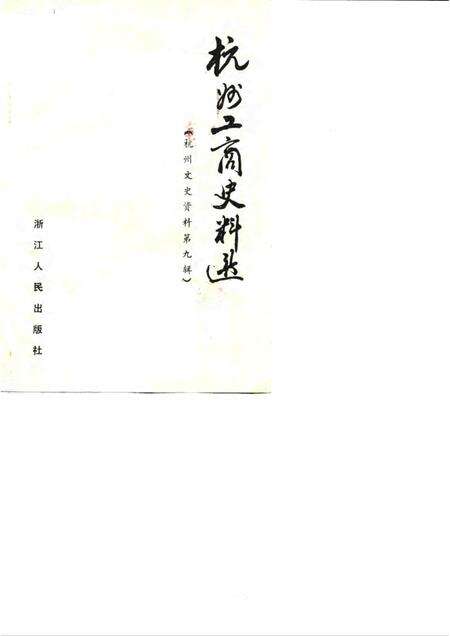 杭州工商史料选
（杭州文史资料第九辑）
浙江人民出版社